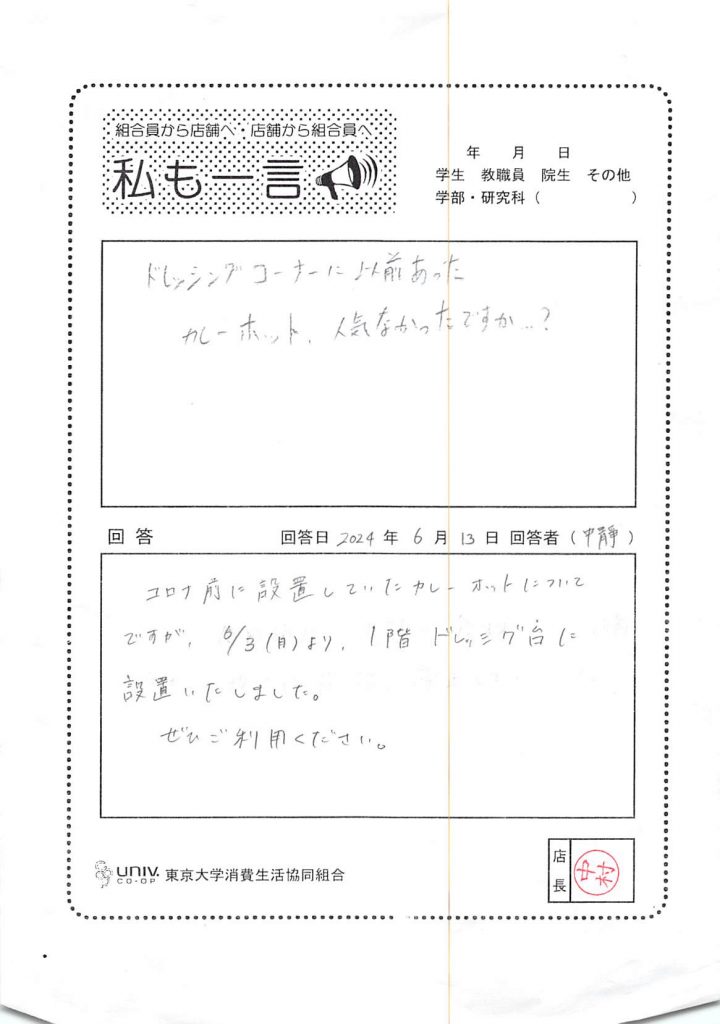 組合員から店舗へ・店舗から組合員へ
私も一言
年 月 日
学生 教職員 院生 その他
学部・研究科( )
ドレッシングコーナーに以前あった
カレーホット、人気なかったですか…?
回答 回答日 2024 年 6 月 13 日 回答者 (中靜)
コロナ前に設置していたカレーホットについて
ですが、6/3(月)より、1階ドレッシグ台に
設置いたしました。
ぜひご利用ください。
UNIV. CO-OP 東京大学消費生活協同組合
店長 中村